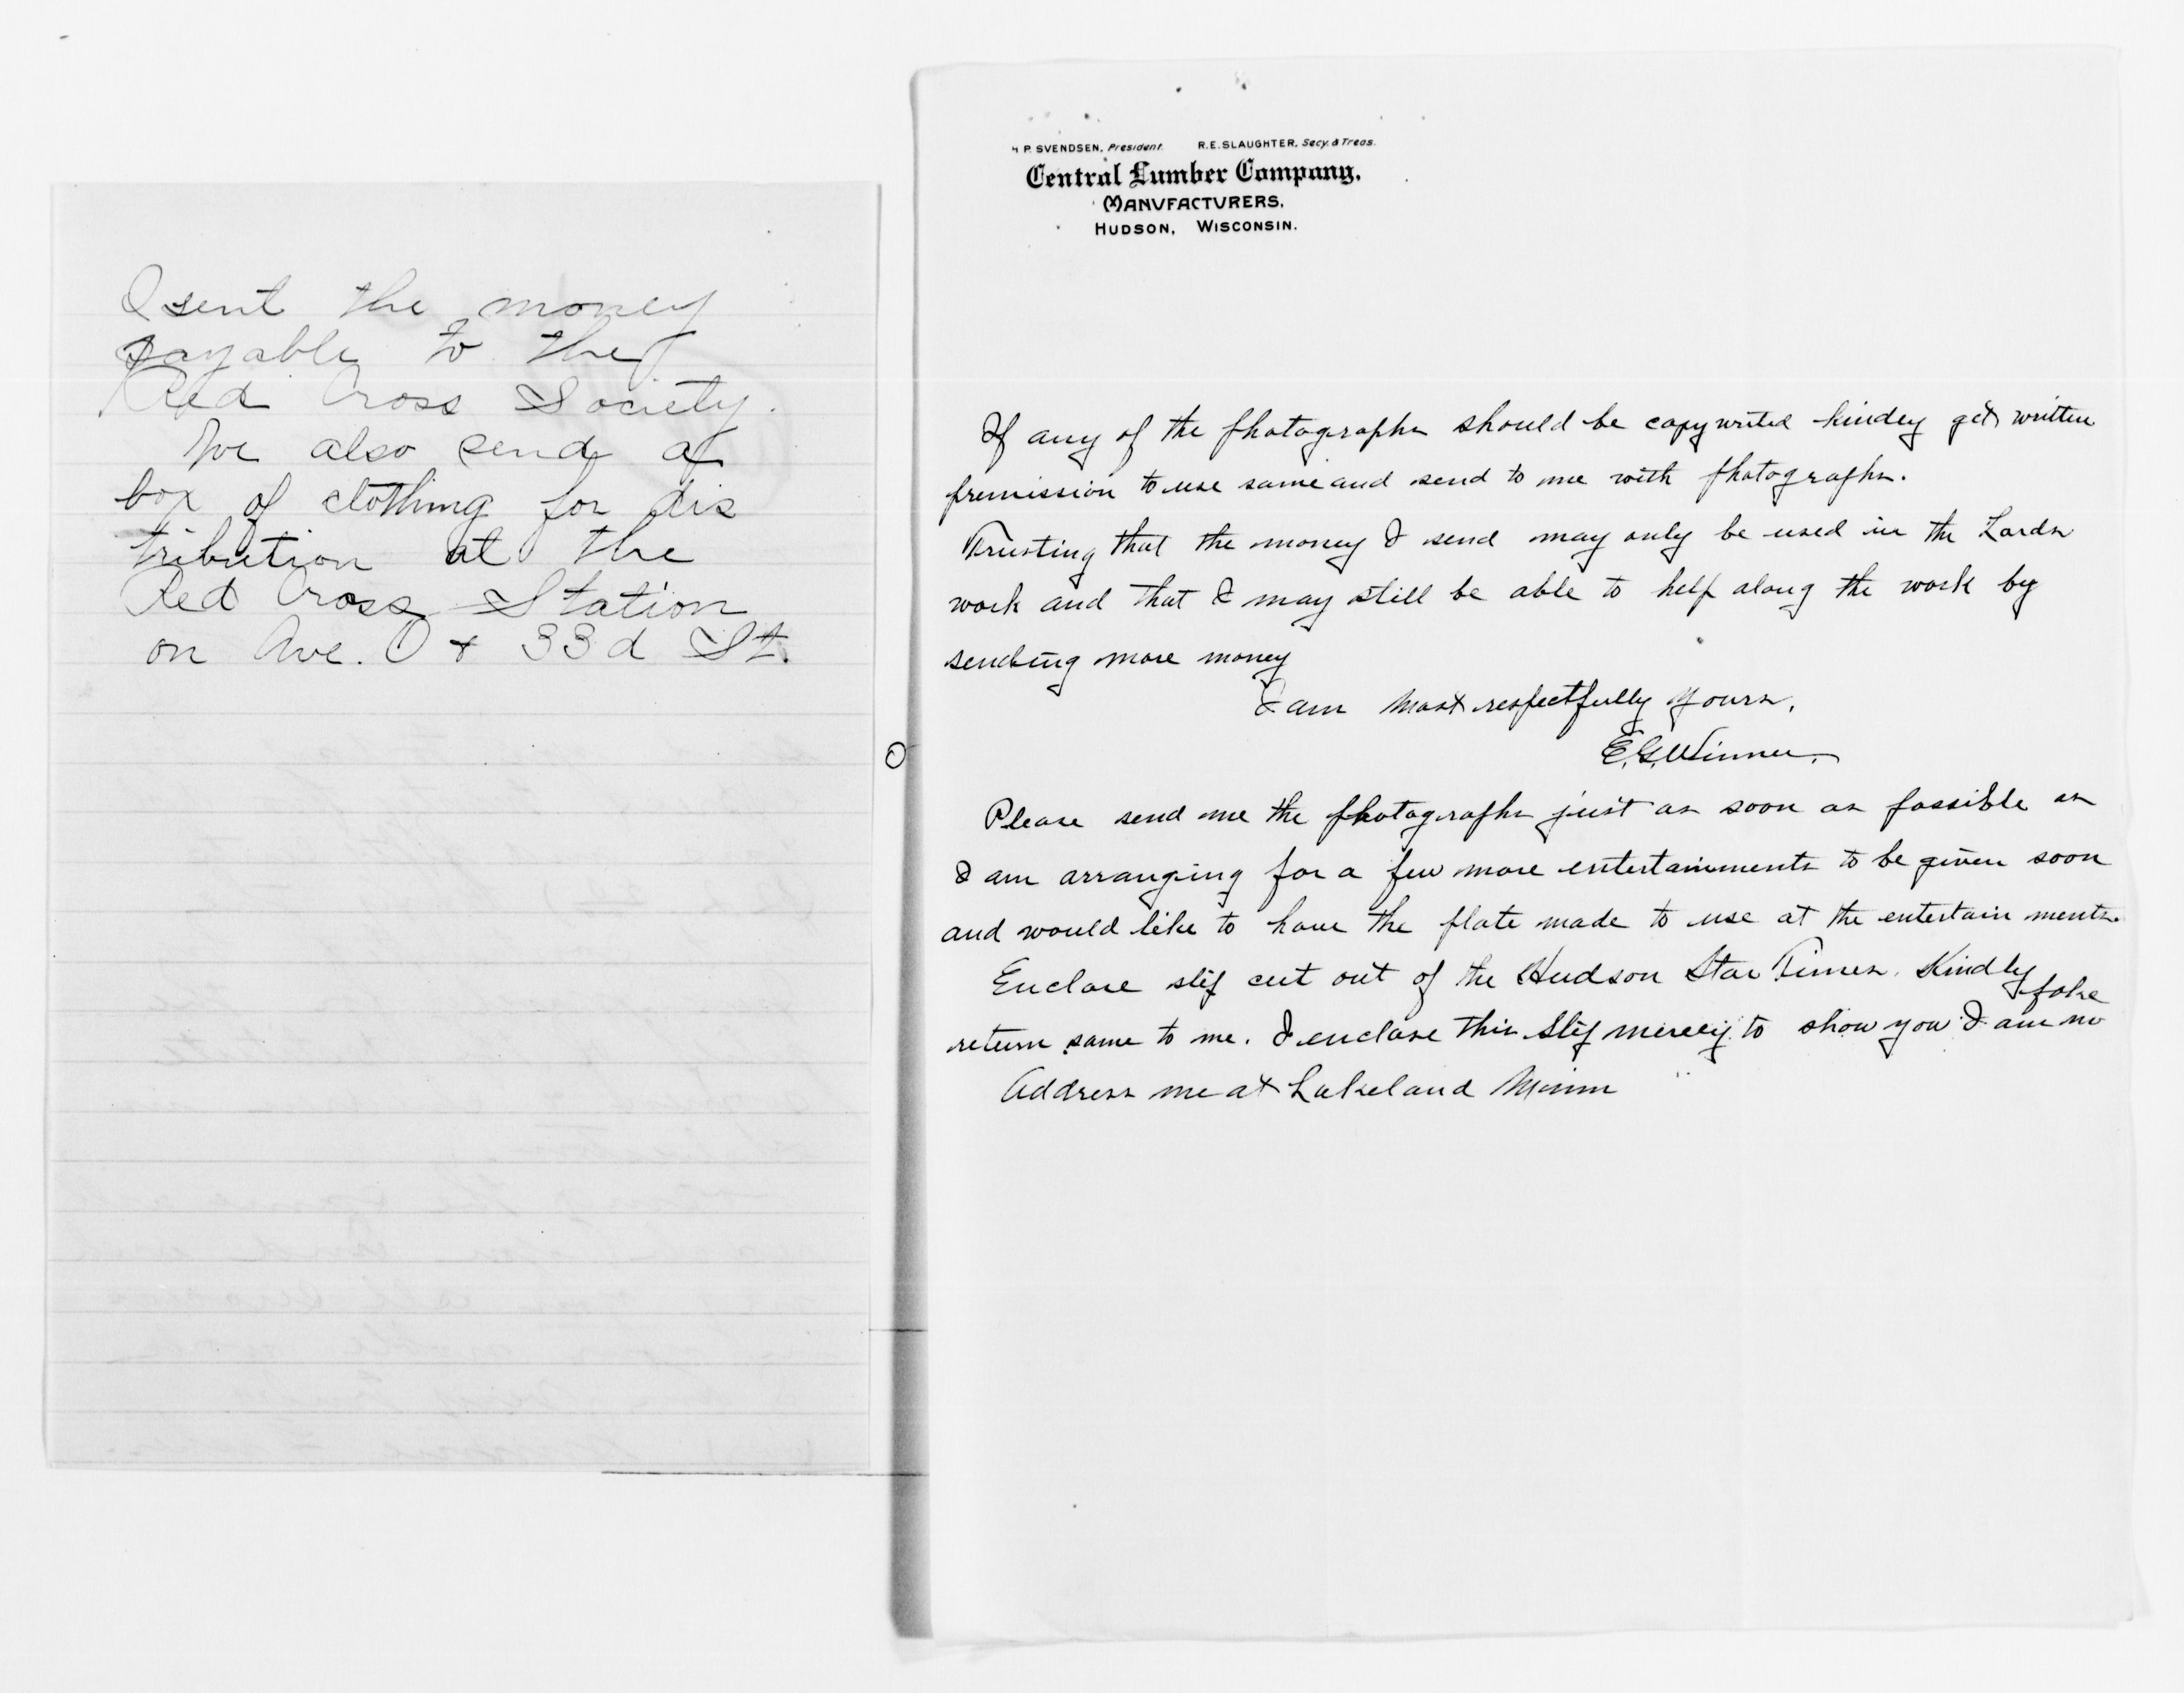 I sent the money
payable to the
Red Cross Society.
We also send a
box of clothing for dis
tribution at the
Red Cross Station
on Ave. O + 33d St.
H P. SVENDSEN, President. R.E. SLAUGHTER, Secy. & Treas.
Central Lumber Company,
MANUFACTURERS.
HUDSON, WISCONSIN.
If any of the photographs should be copy writed kindey get written
premission to use same and send to me with photographs.
Trusting that the money I send may only be used in the Lords
work and that I may still be able to help along the work by
sending more money
I am most respectfully yours,
E.G. Winner.
Please send me the photographs just as soon as possible as
I am arranging for a few more entertainments to be given soon
and would like to have the plate made to use at the entertain ments.
Enclose slip cut out of the Hudson Star Times. Kindly
return same to me. I enclose this slip merely to show you I am no fake
Address me at Lakeland Minn